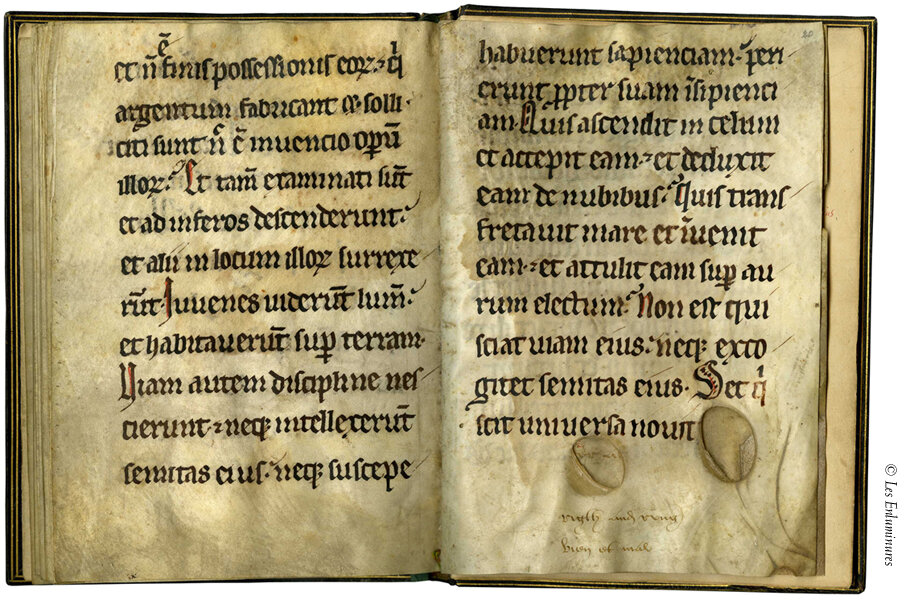 et n̄ ē finis possessionis eoꝝ. qͥ
argentum fabricant et solli
citi sunt n̄ ē inuencio opeꝝ
illoꝝ. Et tam̄ sūt
et ad inferos descenderunt.
et alii in locum illoꝝ surrexe
rūt Iuuenes uiderūt lum̄.
et habitauerūt suꝑ terram.
Viam autem discipline nes
cierunt. neqꝫ intellexerūt
semitas eius. neqꝫ suscepe
20
habuerunt sapienciam. ꝑeri
erunt ꝓpter suam īsipienci
am. Quis ascendit in celum
et accepit eam. et deduxit
eam de nubibus. Quis trans
fretauit mare et īuenit
eam. et attulit eam suꝑ au
rum electum. Non est qui
sciat uiam eius. neqꝫ exco
gitet semitas eius. Set qͥ
scit uniuersa nouit
rigth and rong
bien et mal
© Les Enluminures